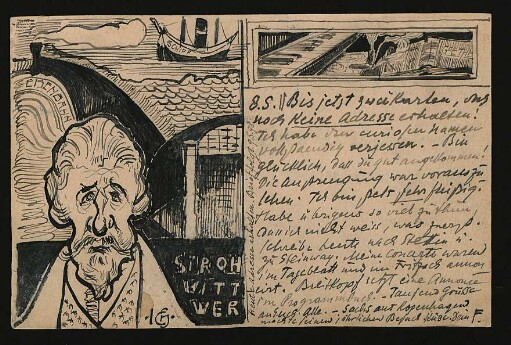 SCHIFF
EISENBAHN
STROH
WITT
WER
8.5. || Bis jetzt zwei Karten, und
noch keine Adresse erhalten!
Ich habe den curiosen Namen
vollstaendig vergessen. — Bin
glücklich, dass du gut angekommen!
Die Anstrengung war vorauszu
sehen. Ich bin stets sehr fleißig.
Habe übrigens so viel zu thun,
dass ich nicht weiss, was zuerst.
Schreibe heute noch Stettin u.
Steinway. Meine Concerte waren
im Tageblatt und im Fritzsch annon
cirt. — Breitkopf setzt eine Annonce
im Programmbuch. — Tausend Grüsse
an euch alle. — Sachs aus Kopenhagen
möchte seinen jährlichen Besuch Dein F.